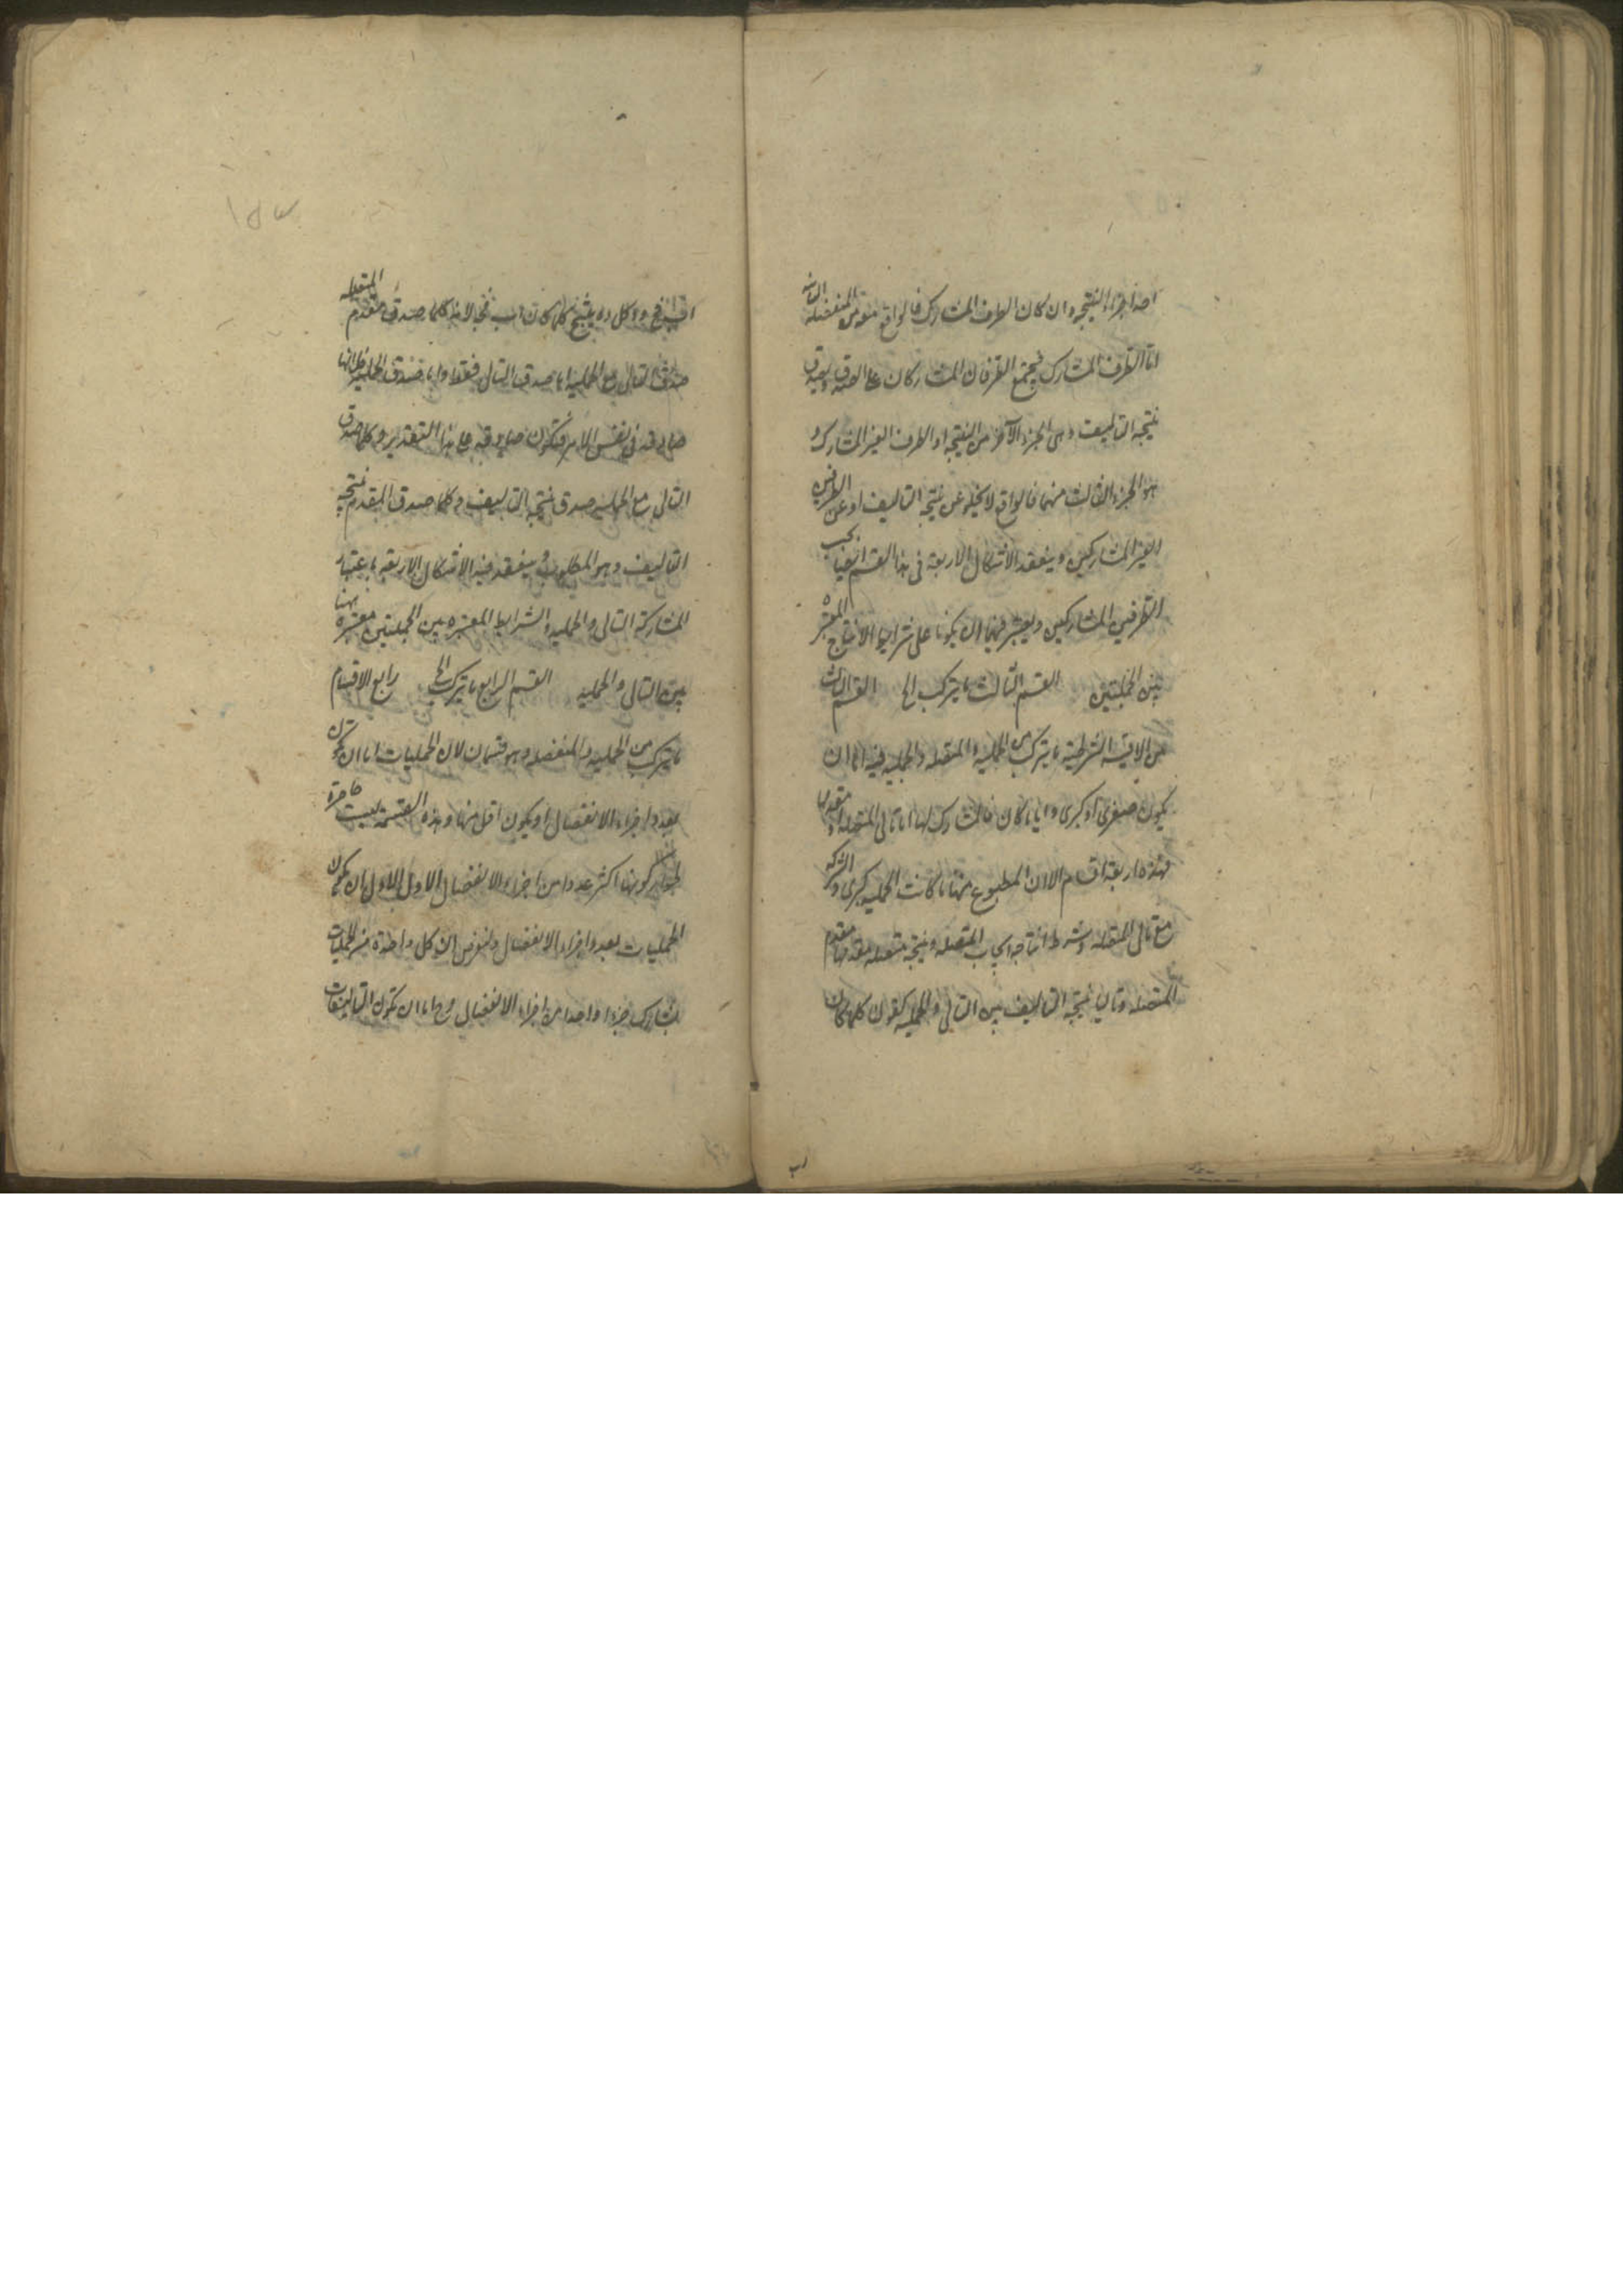 احد اجزاء النتيجة وان كان الطرف المشارك فالواقع معه من المنفصلة الثانية
اما الطرف المشارك فيجتمع الطرفان المشاركان على الصدق ويصدق
نتيجة التاليف وهى الجزء الآخر من النتيجة او الطرف الغير المشارك و
هو الجزء الثالث منهما فالواقع لا يخلو عن نتيجة التاليف او عن الطرفين
الغير المشاركين وينعقد الاشكال الاربعة فى هذا القسم ايضا بحسب
الطرفين المشاركين ويعتبر فيهما ان يكونا على شرايط الانتاج المعتبرة
بين الحمليتين القسم الثالث ما يتركب الخ القسم الثالث
من الاقيسة الشرطية ما يتركب من الحملية والمتصلة والحملية فيه اما ان
يكون صغرى او كبرى وايا ما كان فالمشارك لها اما تالى المتصلة او مقدمها
فهذه اربعة اقسام الا ان المطبوع منها ما كانت الحملية كبرى والشركة
مع تالى المتصلة وشرط انتاجه ايجاب المتصلة ونتيجته متصلة مقدمها مقدم
المتصلة وتاليها نتيجة التاليف بين التالى والحملية كقولنا كلما كان
اب فج د وكل ده ينتج كلما كان اب فج ه لانه كلما صدق مقدم المتصلة
صدق التالى مع الحملية اما صدق التالى فظاهر واما صدق الحملية فلانها
صادقة فى نفس الامر فتكون صادقة على هذا التقدير وكلما صدق
التالى مع الحملية صدق نتيجة التاليف فكلما صدق المقدم نتيجة
التاليف وهو المطلوب وينعقد فيه الاشكال الاربعة باعتبار
المشاركة التالى والحملية والشرايط المعتبرة بين الحمليتين معتبرة ههنا
بين التالى والحملية القسم الرابع ما يتركب الخ رابع الاقسام
ما يتركب من الحملية والمنفصلة وهو قسمان لان الحمليات اما ان تكون
بعدد اجزاء الانفصال او يكون اقل منها وهذه القسمة ليست حاصرة
لجواز كونها اكثر عددا من اجزاء الانفصال الاول الاول ان تكون
الحمليات بعدد اجزاء الانفصال ولنفرض ان كل واحدة من الحمليات
يشارك جزءا واحدا من اجزاء الانفصال وح اما ان تكون التاليفات